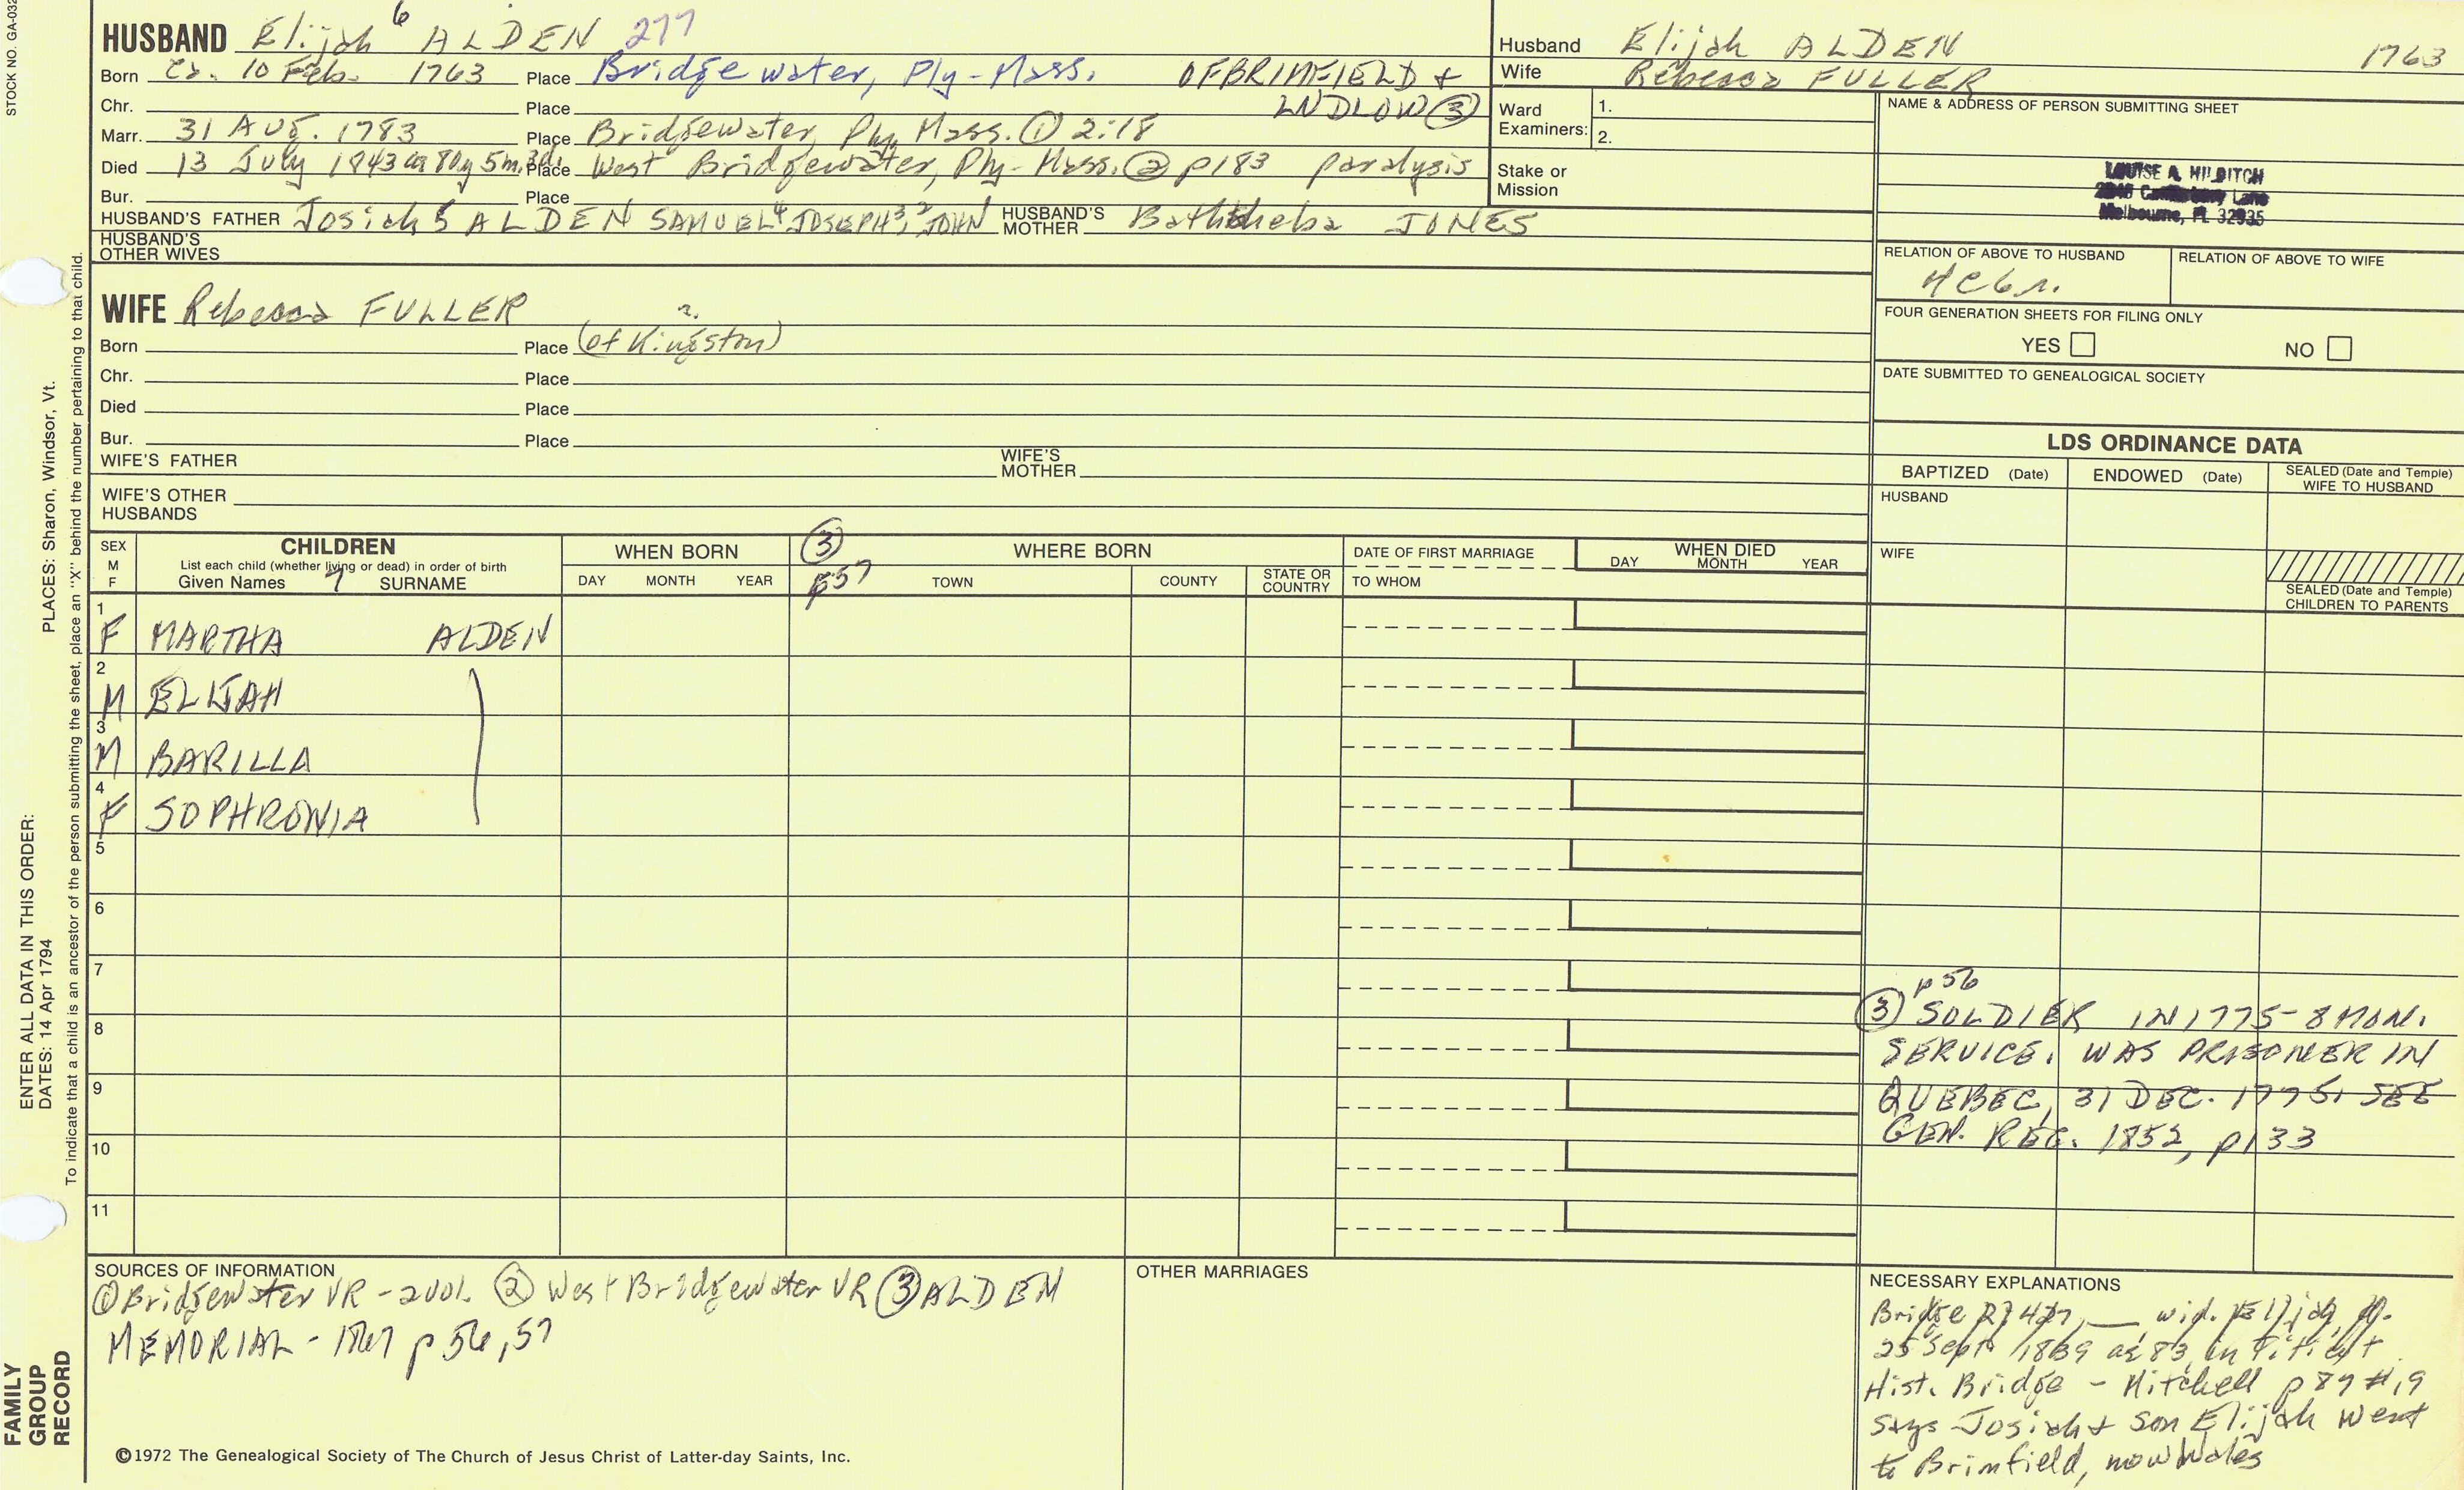 STOCK NO. GA-032
HUSBAND Elijah 6 ALDEN 277
Born Ca. 10 Feb. 1763 Place Bridgewater, Ply-Mass. OF BRIMFIELD &
Chr. Place LUDLOW ③
Marr. 31 Aug. 1783 Place Bridgewater, Ply, Mass. ① 2:18
Died 13 July 1843 ae 80y 5m. 3d. Place West Bridgewater, Ply-Mass. ② p183 paralysis
Bur. Place
HUSBAND'S FATHER Josiah 5 ALDEN SAMUEL 4 JOSEPH 3, 2 JOHN HUSBAND'S MOTHER Bathsheba JONES
HUSBAND'S OTHER WIVES
Husband Elijah ALDEN 1763
Wife Rebecca FULLER
Ward Examiners: 1.
2.
Stake or Mission
NAME & ADDRESS OF PERSON SUBMITTING SHEET
LOUISE A. HILDITCH
Lane
Melbourne, FL 32935
RELATION OF ABOVE TO HUSBAND RELATION OF ABOVE TO WIFE
FOUR GENERATION SHEETS FOR FILING ONLY
YES NO
DATE SUBMITTED TO GENEALOGICAL SOCIETY
WIFE Rebecca FULLER
Born Place (of Kingston) ?
Chr. Place
Died Place
Bur. Place
WIFE'S FATHER WIFE'S MOTHER
WIFE'S OTHER HUSBANDS
LDS ORDINANCE DATA
BAPTIZED (Date) ENDOWED (Date) SEALED (Date and Temple) WIFE TO HUSBAND
HUSBAND
WIFE
SEALED (Date and Temple) CHILDREN TO PARENTS
SEX M F
CHILDREN
List each child (whether living or dead) in order of birth
Given Names 7 SURNAME
WHEN BORN
DAY MONTH YEAR
③ p57
WHERE BORN
TOWN COUNTY STATE OR COUNTRY
DATE OF FIRST MARRIAGE
TO WHOM
WHEN DIED
DAY MONTH YEAR
1 F MARTHA ALDEN
2 M ELIJAH
3 M BARILLA
4 F SOPHRONIA
5
6
7
8
9
10
11
p 56
③ SOLDIER IN 1775-8 MON.
SERVICE. WAS PRISONER IN
QUEBEC, 31 DEC. 1775. SEE
GEN. REG. 1852, p133
SOURCES OF INFORMATION
① Bridgewater VR - 2 vol. ② West Bridgewater VR ③ ALDEN
MEMORIAL - 1867 p 56, 57
OTHER MARRIAGES
NECESSARY EXPLANATIONS
Bridge wid. Elijah, d.
25 Sept 1839 ae 83, in Titicut
Hist. Bridge - Mitchell p 87 #19
says Josiah & son Elijah went
to Brimfield, now Wales
©1972 The Genealogical Society of The Church of Jesus Christ of Latter-day Saints, Inc.
FAMILY
GROUP
RECORD
ENTER ALL DATA IN THIS ORDER:
DATES: 14 Apr 1794
PLACES: Sharon, Windsor, Vt.
To indicate that a child is an ancestor of the person submitting the sheet, place an "X" behind the number pertaining to that child.